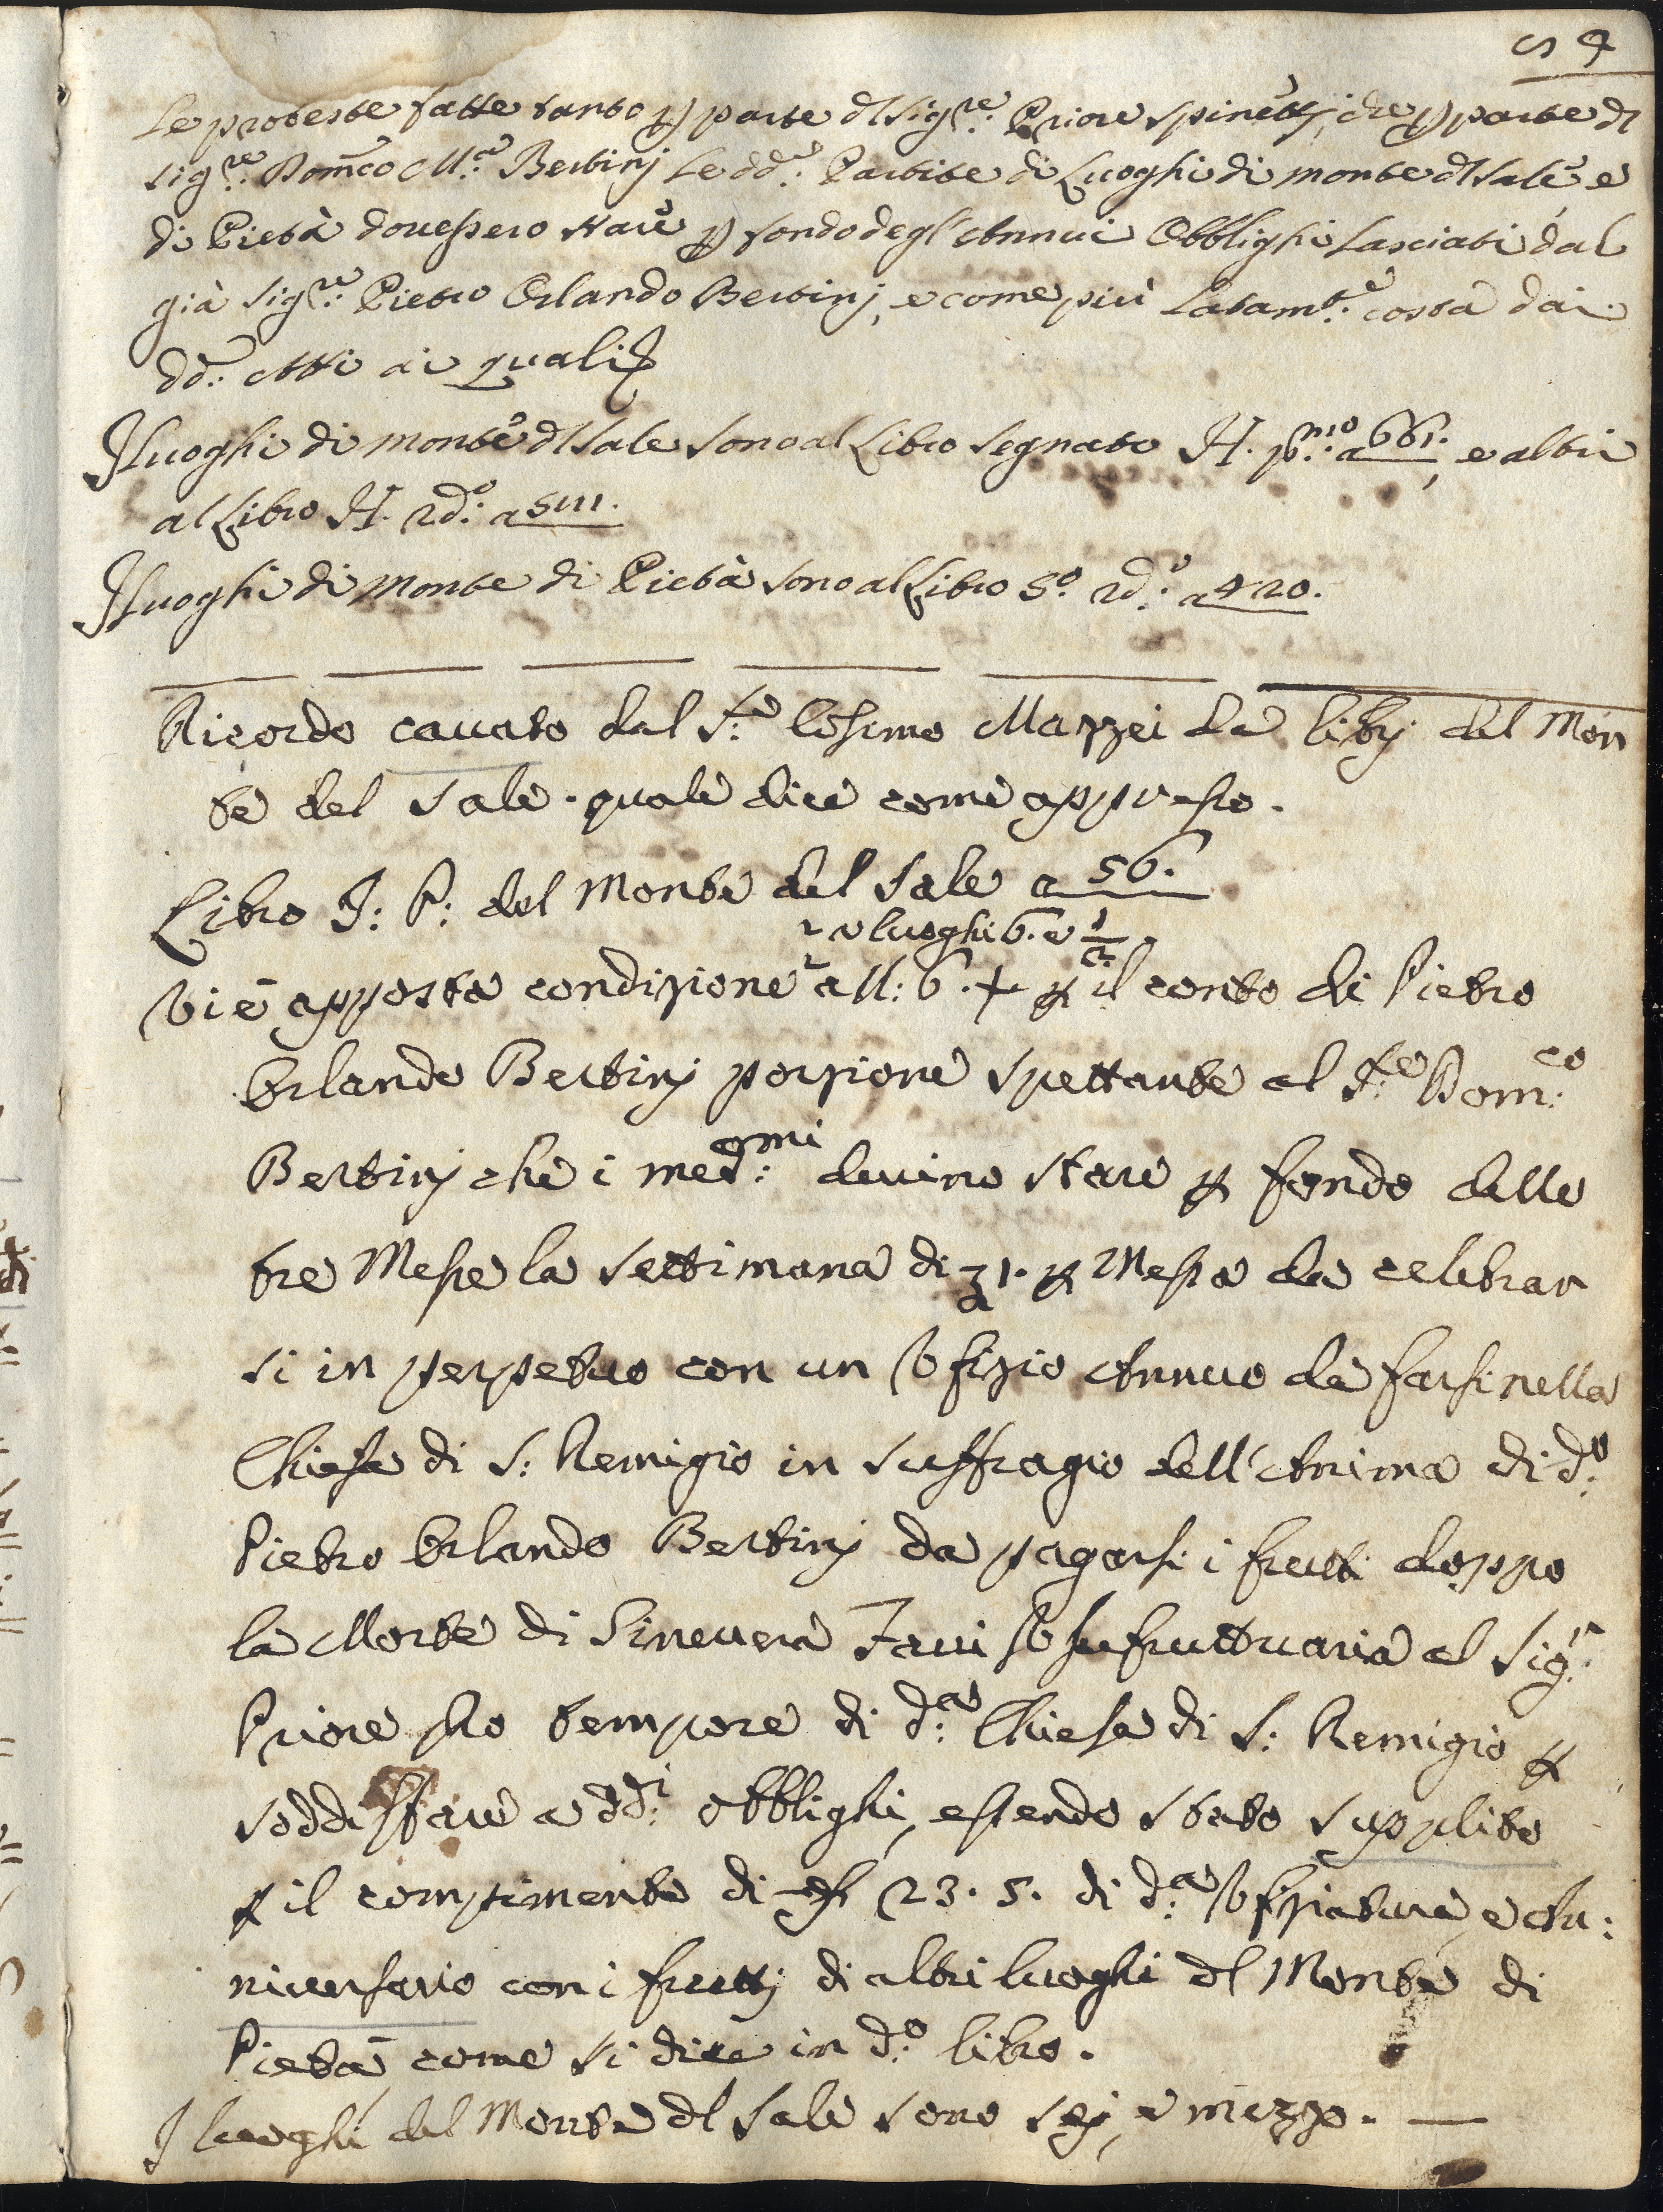 54
Le proteste fatte tanto p parte dl Sig.re Priore Spinetti, che p parte dl
Sig.re Dom̃co M.a Bertinj Le dd.e Partite di Luoghi di monte dl Sale, e
di Pietà dovessero stare p fondo degl'Annui Obblighi Lasciati dal
già Sig.re Pietro Orlando Bertinj, e come più Latam.te costa dai
dd.i Atti ai quali
I luoghi di monte dl Sale sono al Libro Segnato H. p.mo a 661. e altri
al Libro H. 2d.o a 511.
I luoghi di Monte di Pietà sono al Libro 5.o 2d.o a 420.
Ricordo cavato dal S.re Cosimo Mazzei da libri del Mon
te del Sale. quale dice come appresso.
Libro I: P: del Monte del Sale a 56.
luoghi 6. e 1/2.
Vi è apposta condizione a ll: 6. + p il conto di Pietro
Orlando Bertinj porzione spettante al S.re Dom.co
Bertinj che i med.mi devino stare p fondo delle
tre Messe la Settimana di 1. p Messa da celebrar
si in perpetuo con un Vfizio Annuo da farsi nella
Chiesa di S: Remigio in suffragio dell'Anima di d.o
Pietro Orlando Bertinj da pagarsi i frutti doppo
la Morte di Ginevera Favi Vsufruttuaria al Sig.r
Priore pro tempore di d.a Chiesa di S: Remigio p
soddisffare a dd.i obblighi, essendo stato supplito
p il compimento di 23. 5. di d.a Vfiziatura, e An:
niversario con i frutti di altri luoghi dl Monte di
Pietà come si dice in d.o libro.
I luoghi del Monte dl Sale sono sej, e mezzo. —